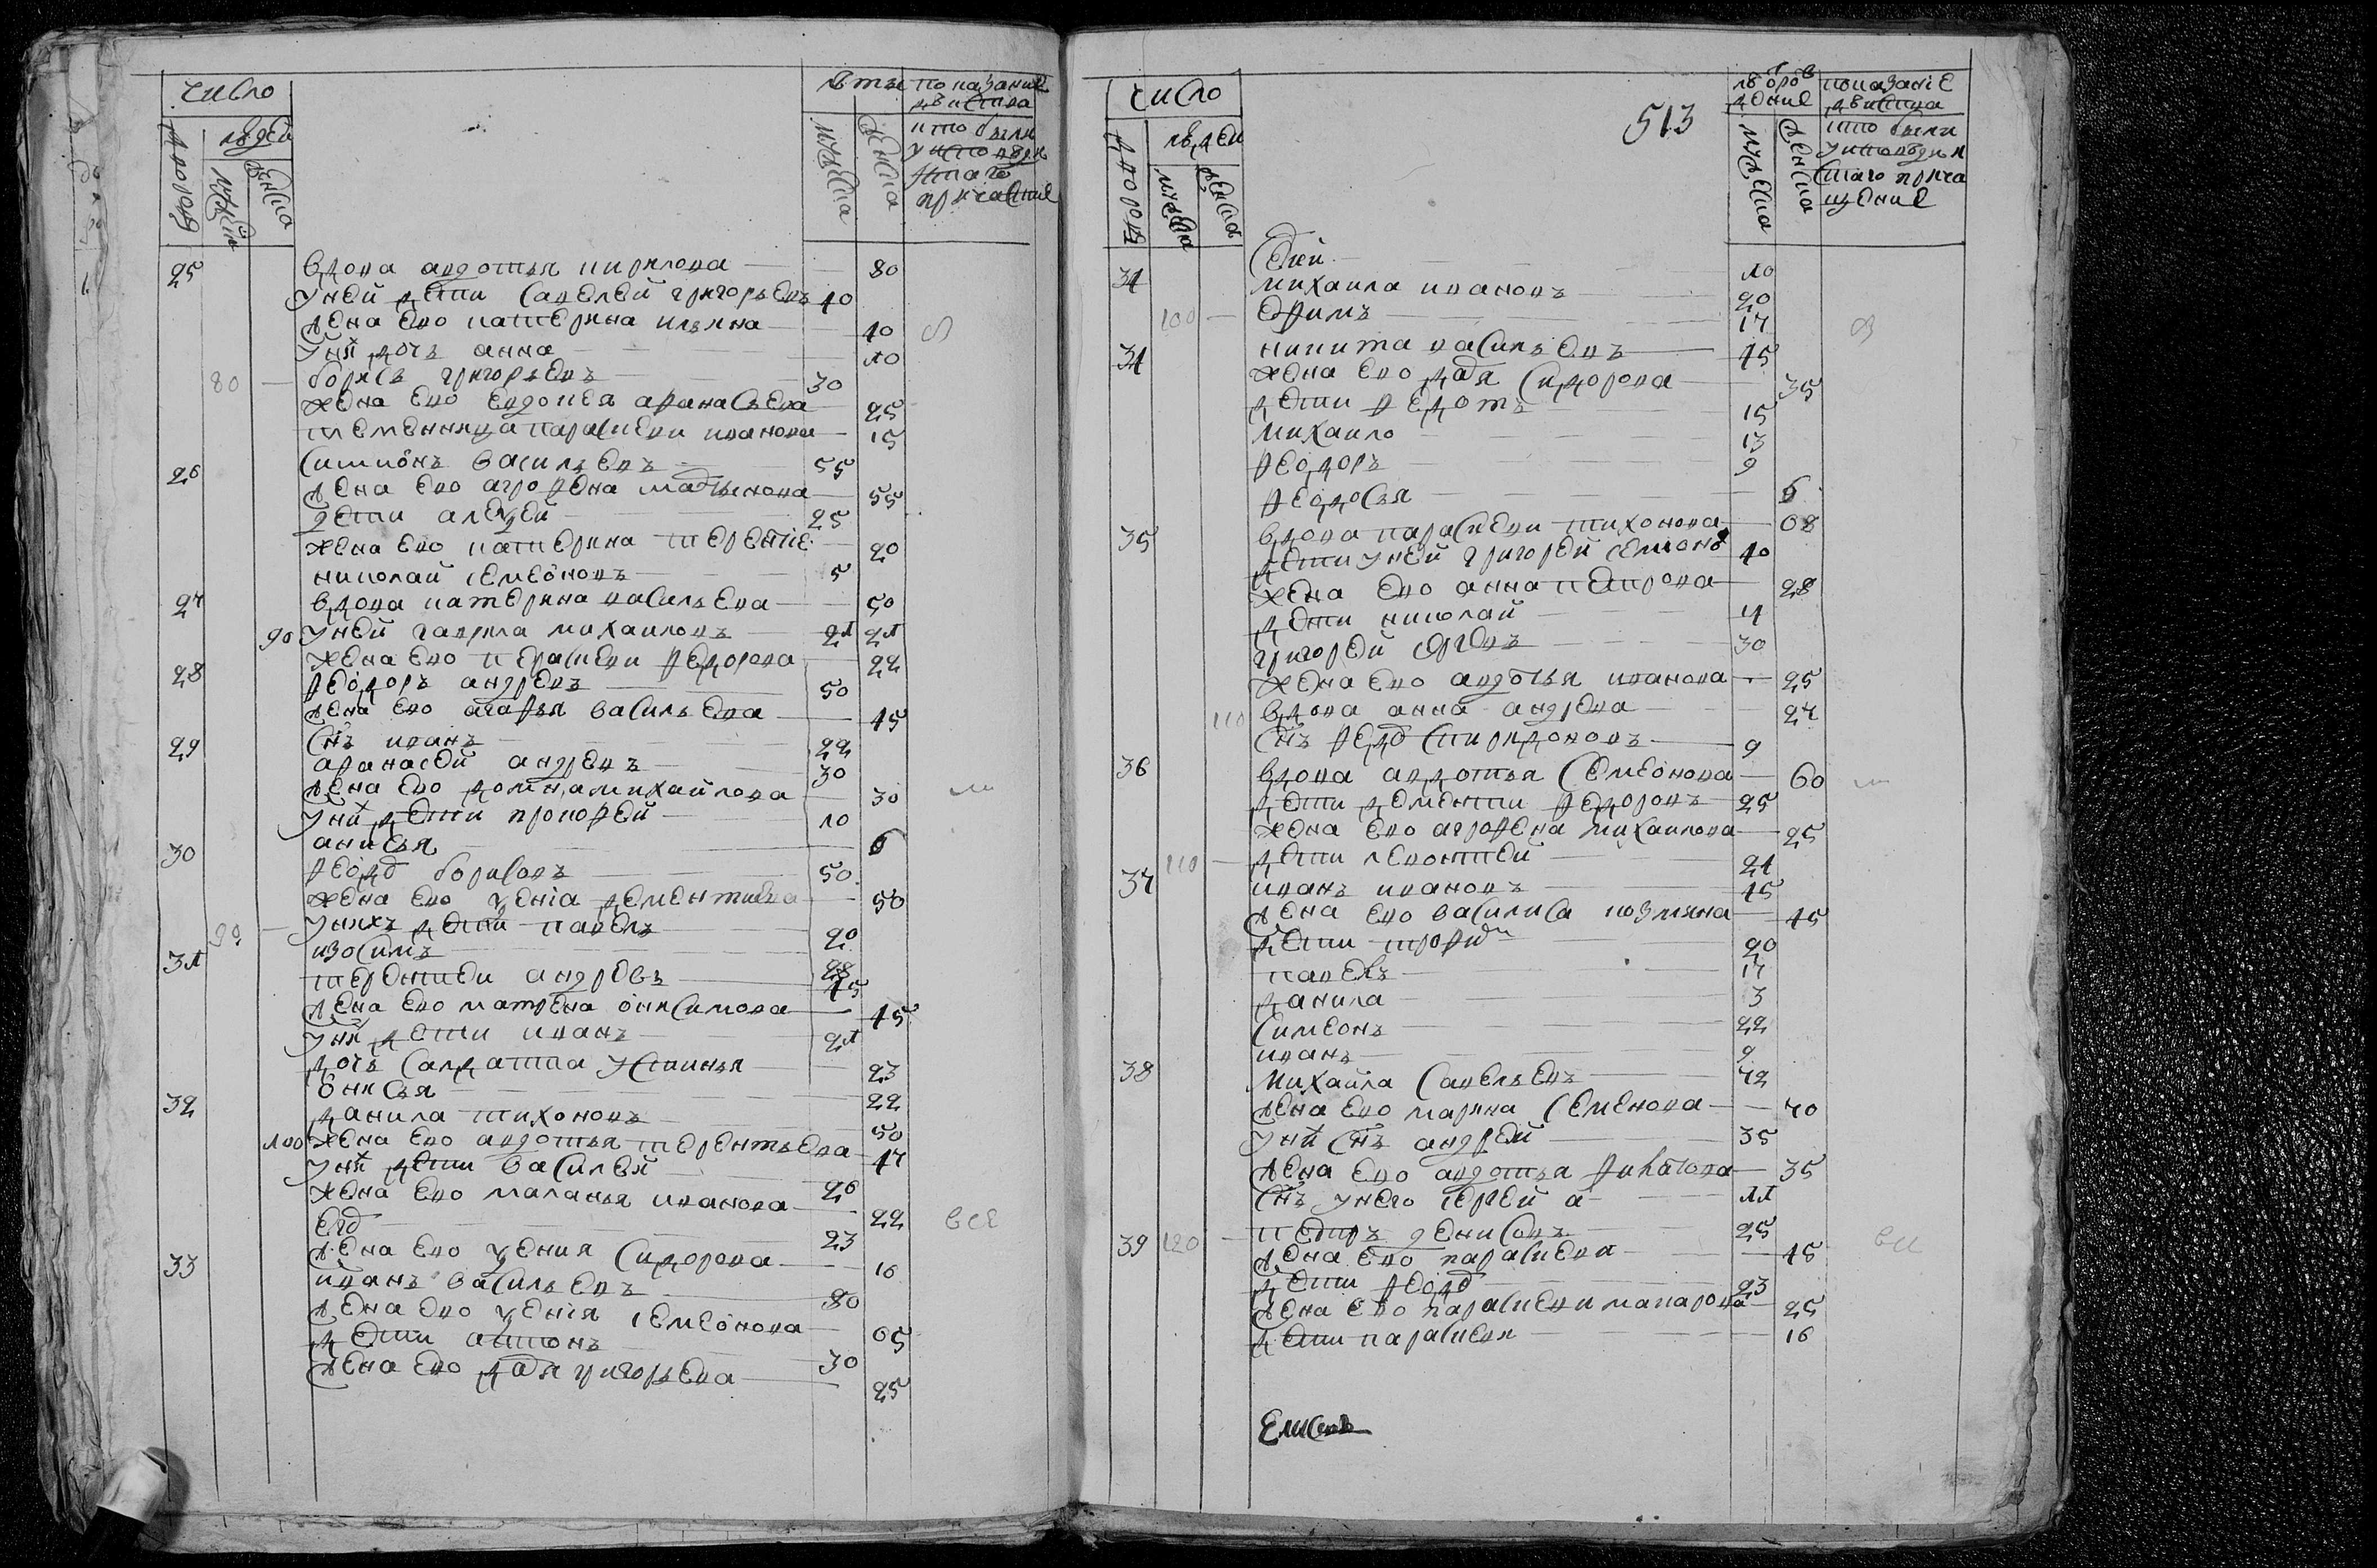 число
людей
дворовъ
мужеска
женска
показание
действа
кто были
у исповеди
и святаго
причастие
мужеска
женска
25 вдова авдотья кирилова 80
у ней дети савелей григорьевъ 40
жена ево катерина ильина 40
у них дочь анна 10
80 борисъ григорьевъ 30
жена ево евдокея афанасьева 25
племенница парасковя иванова 15
26 симионъ васильевъ 55
жена ево агрофена мартынова 55
дети алексей 25
жена ево катерина терентие 20
николай семеоновъ 5
27 вдова катерина васильева 50
90 у ней гаврила михаиловъ 21 21
жена ево парасковя федорова 22
28 феодоръ андревъ 50
жена ево агафья васильева 45
снъ иванъ 22
29 афанасей андревъ 30
жена ево домна михайлова 30
у них дети прокофей 10
анисья 6
30 феодоръ борисовъ 50
жена ево ксения дементиева 50
90 у нихъ дети павелъ 20
изосимъ 28
31 терентией андревъ 45
жена ево матрена онисимова 45
у них дети иванъ 21
дочь салдатка устинья 23
онисья 22
32 данила тихоновъ 50
100 жена ево авдотья терентьева 47
у них дети василей 26
жена ево маланья иванова 22
егоръ 23
жена ево ксения сидорова 16
33 иванъ васильевъ 80
жена ево ксения семеонова 65
дети антонъ 30
жена ево дарья григорьева 25
все
513
число
людей
дворовъ
мужеска
женска
показание
действа
кто были
у исповеди и
стаго прича
щение
мужеска
женска
34 михаила ивановъ 20
100 ефимъ 17
34 никита васильевъ 45
жена ево дарья сидорова 35
дети федотъ 15
михаило 13
феодоръ 9
феодосья 6
35 вдова парасковя тихонова 68
дети у ней григорей семионовъ 40
жена ево анна петрова 28
дети николай 4
григорей 30
жена ево авдотья иванова 25
110 вдова анна андрева 27
снъ федоръ спиридоновъ 9
36 вдова авдотья семеонова 60
дети дементи федоровъ 25
жена ево агрофена михаилова 25
110 дети левонтией 21
37 иванъ ивановъ 45
жена ево василиса козмина 45
дети трофим 20
павелъ 17
данила 3
симеонъ 22
иванъ 9
38 михайла савельевъ 72
жена ево марина семенова 70
у них снъ андрей 35
жена ево авдотья филатова 35
снъ у него сергей 11
39 120 петръ денисовъ 25
жена ево парасковя 45
дети феодоръ 23
жена ево парасковя макарова 25
дети парасковя 16
все